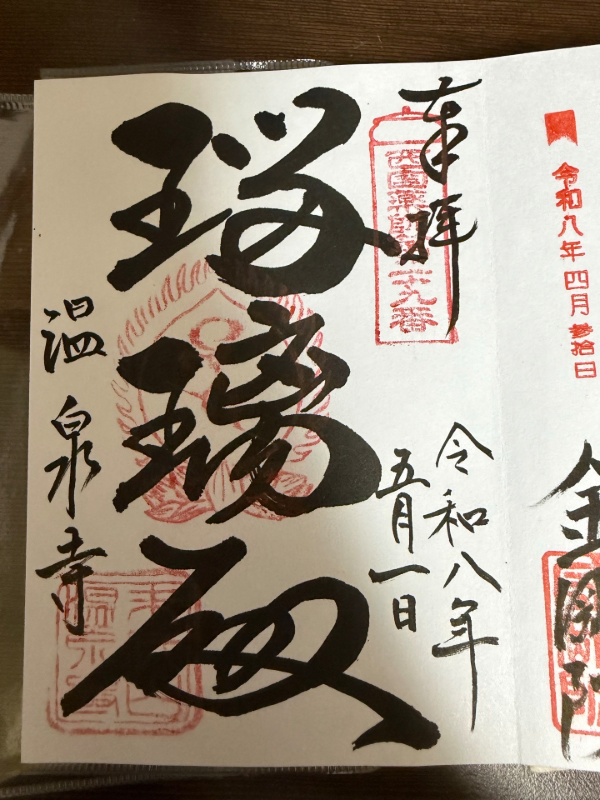 令和八年四月参拾日
奉拝
西国薬師第廿九番
令和八年
五月一日
瑠璃殿
温泉寺